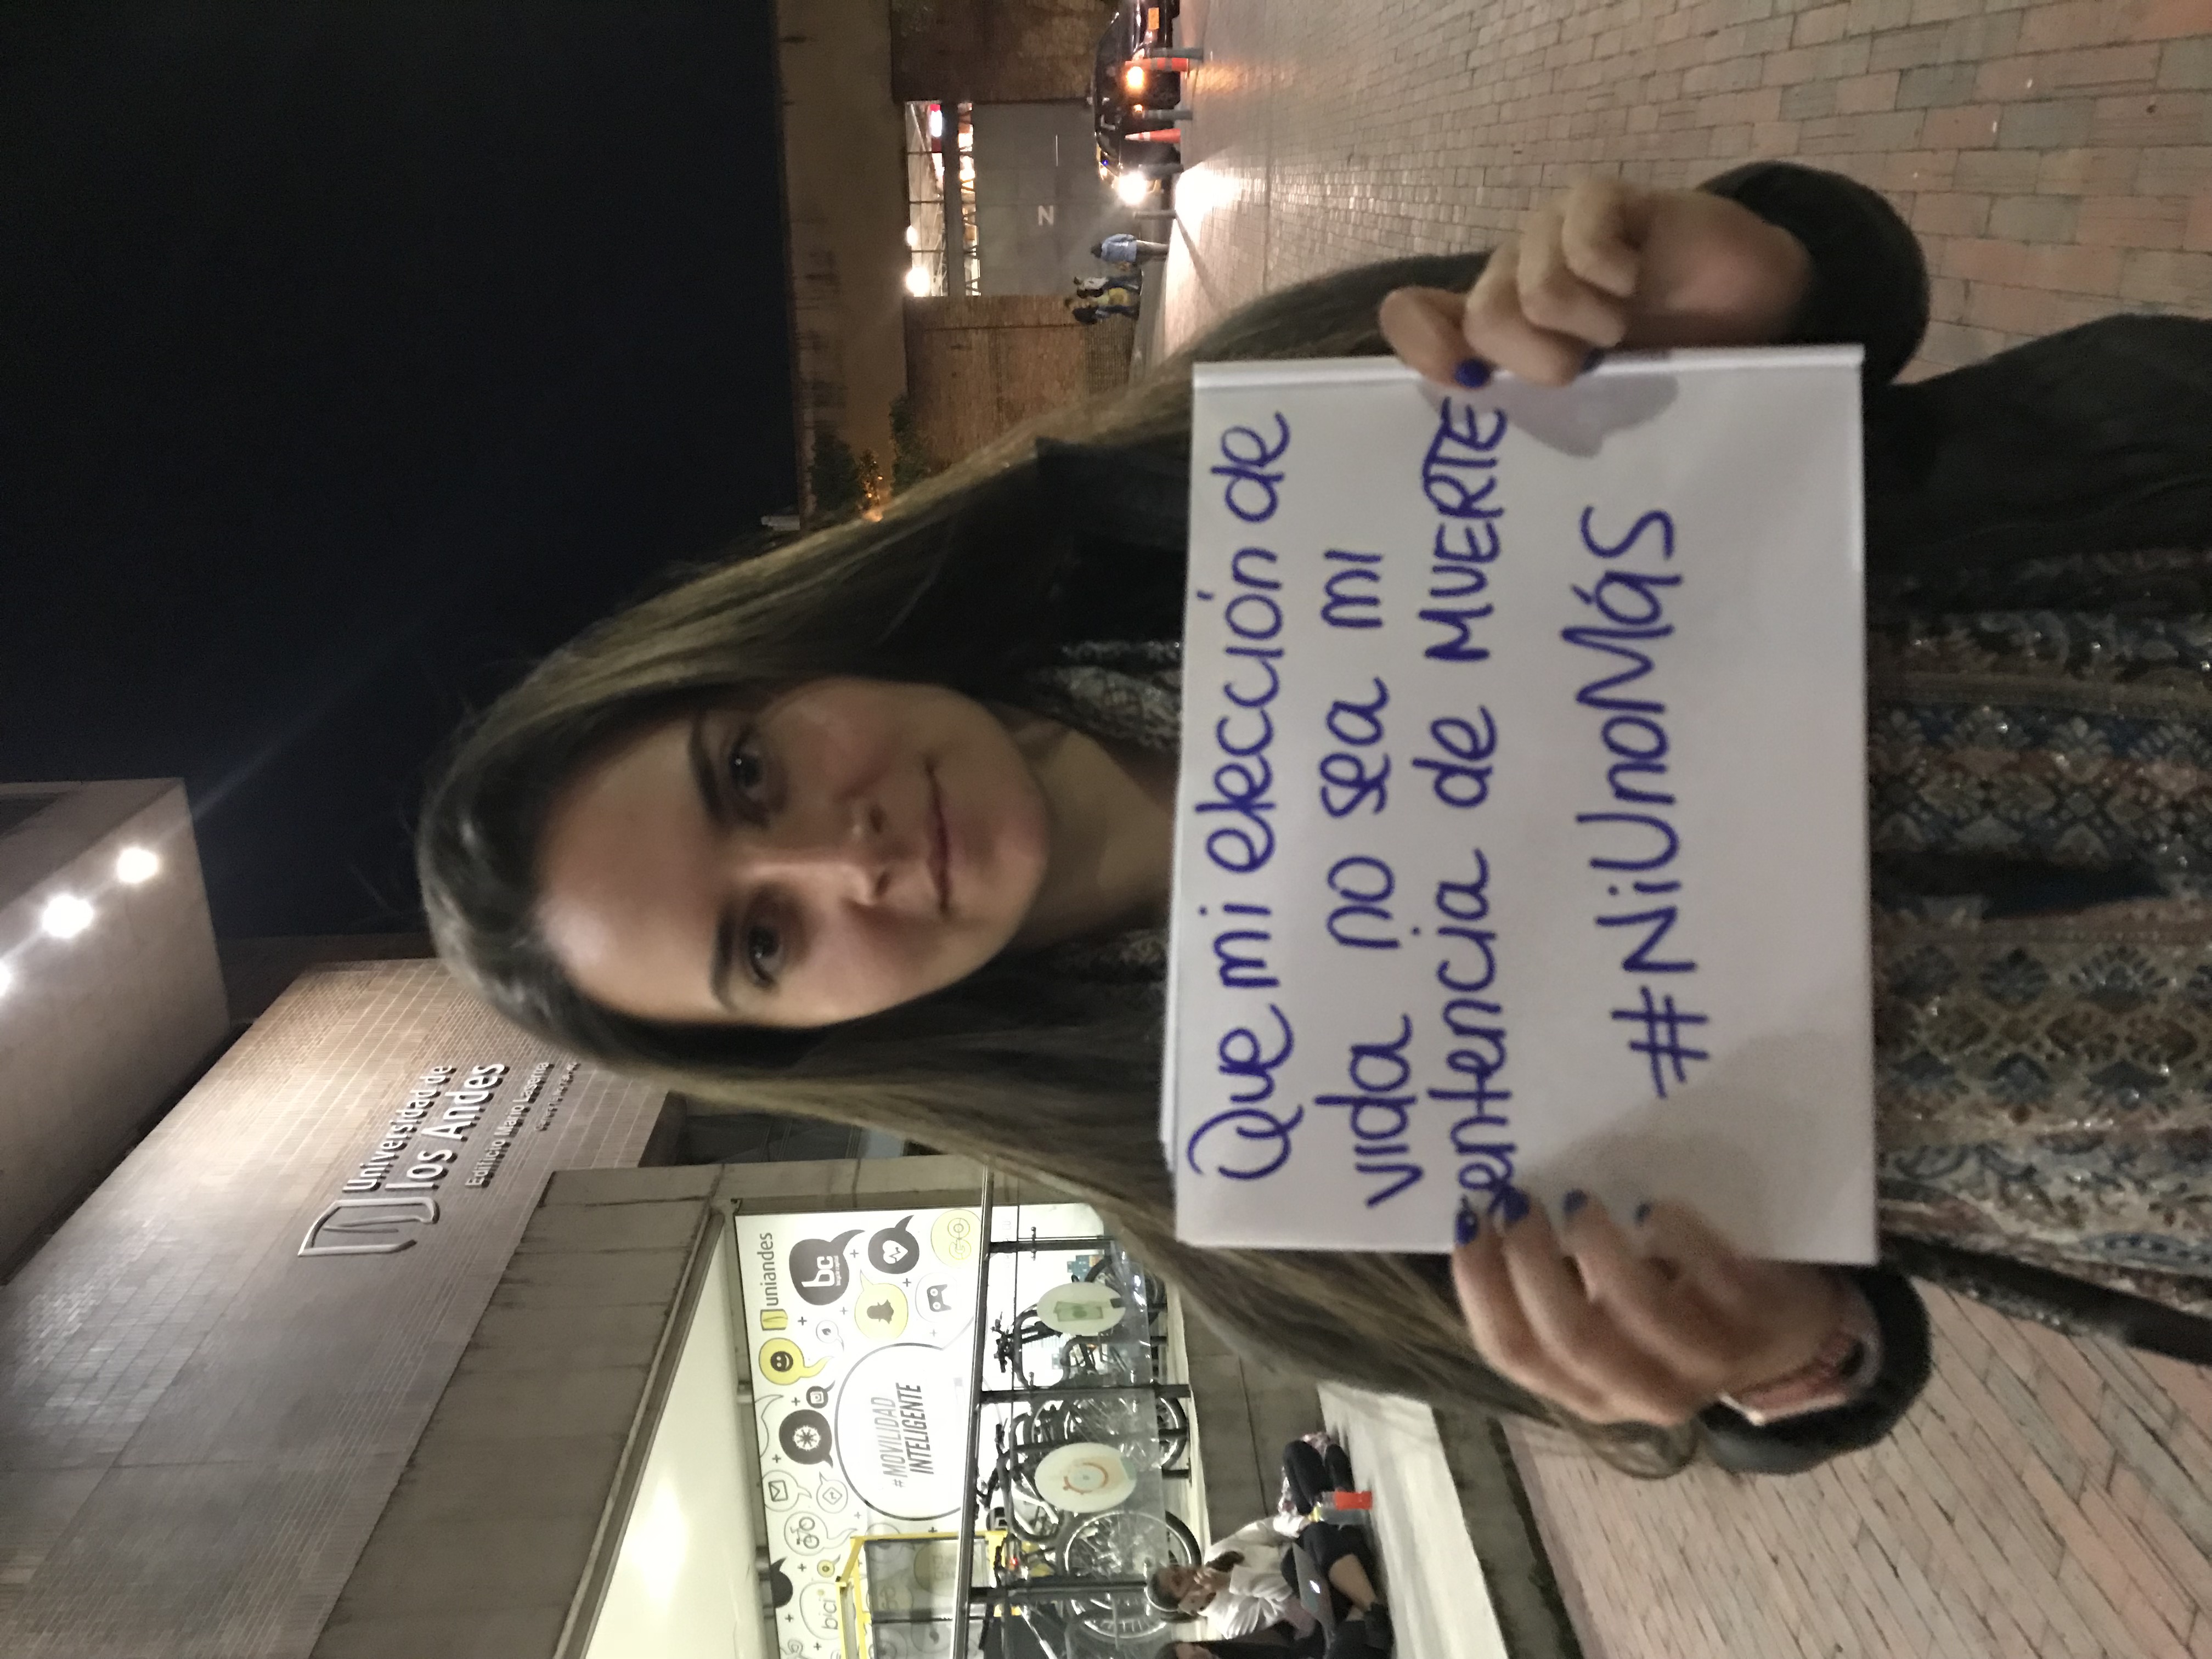 Universidad de
los Andes
Edificio Mario Laserna
uniandes
bici
bc
#MOVILIDAD
INTELIGENTE
N
Que mi elección de
vida no sea mi
sentencia de MUERTE
#NiUnoMás